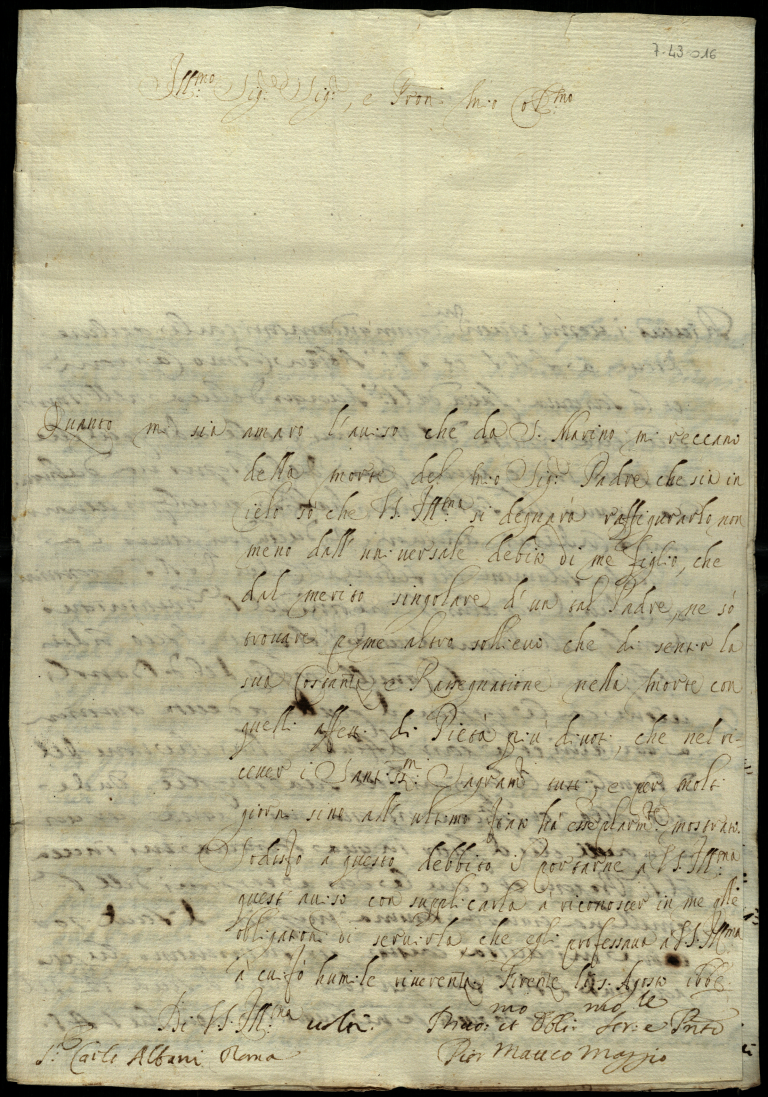 7-43-016
Ill:mo Sig: Sig:, e Pron: mio Oss:mo
Quanto mi sia amaro l'auiso che da S. Marino mi reccano
della morte del mio Sig: Padre che sia in
cielo sò che V.S. Ill:ma si degnarà raffigurarlo non
meno dall'uniuersale debito di me figlio, che
dal merito singolare d'un tal Padre, ne sò
trouare p me altro sollieuo che di sentir la
sua Costanza e Rassegnatione nella morte con
quelli affetti di Pietà più diuoti, che nel ri-
ceuer i Santiss:mi Sagram:ti tutti, e per molti
giorni sino all'ultimo fiato hà essemplarm:te mostrato.
Sodisfo a questo debbito di portarne a V.S. Ill:ma
quest'auiso con supplicarla a riconoscer in me q:lle
obligationi di seruirla che egli professaua a V.S. Ill:ma
a cui fò humile riuerenza. Firenze li Agosto
Di V.S. Ill:ma
Diuot:mo et Obli:mo Ser:e
S:r Carlo Albani Roma
Pier Matteo Maggio